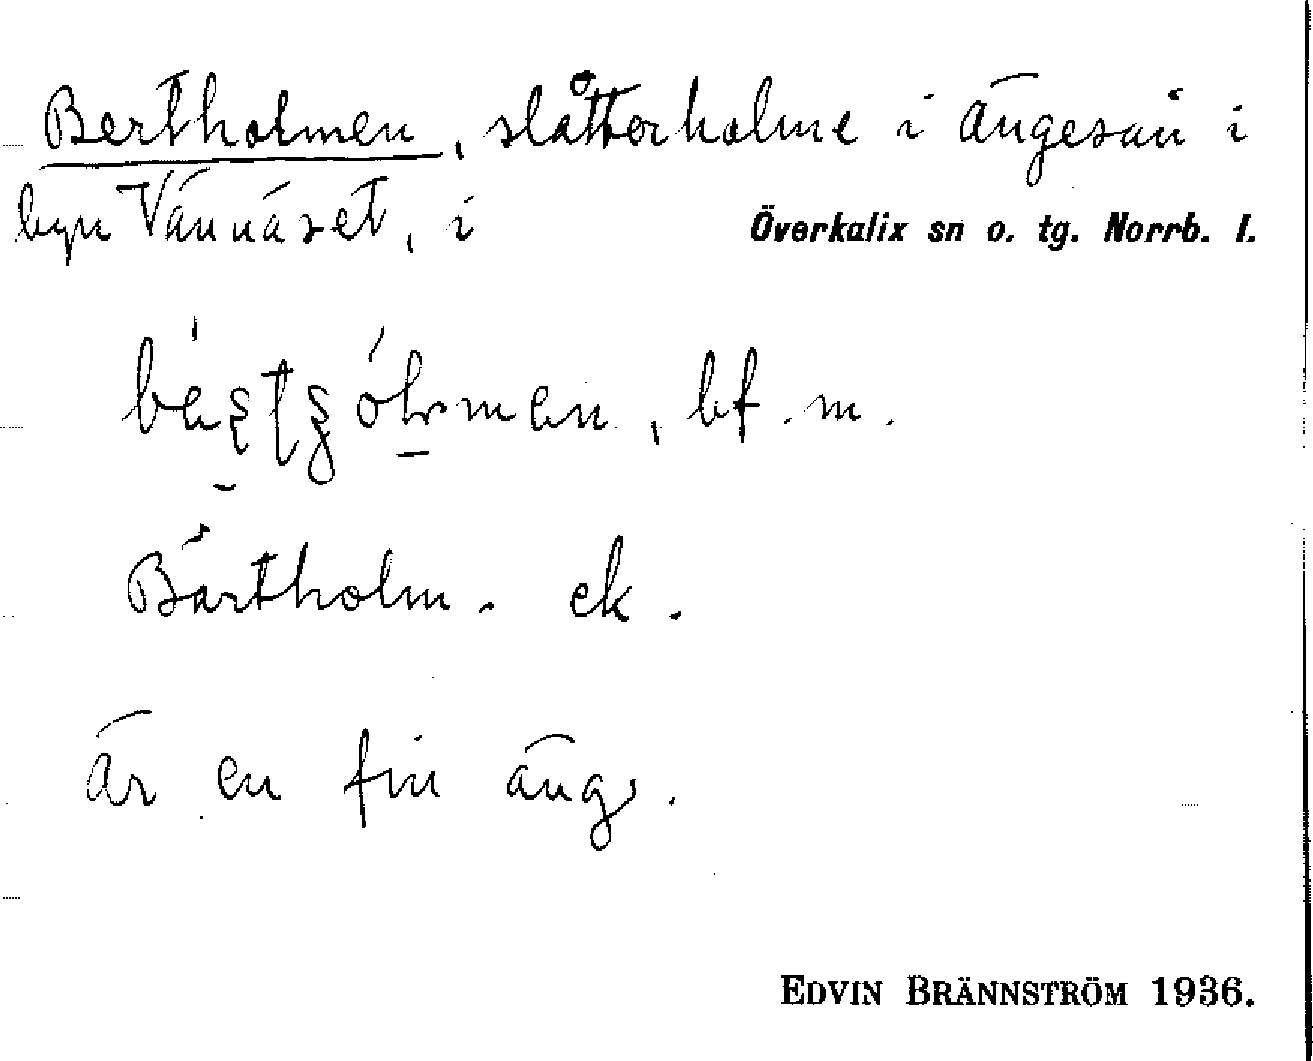 Bertholmen, slåtterholme i Ängesån i
byn Vännäset, i Överkalix sn o. tg. Norrb. l.
bf. m.
Bärtholm. ek.
är en fin äng.
EDVIN BRÄNNSTRÖM 1936.